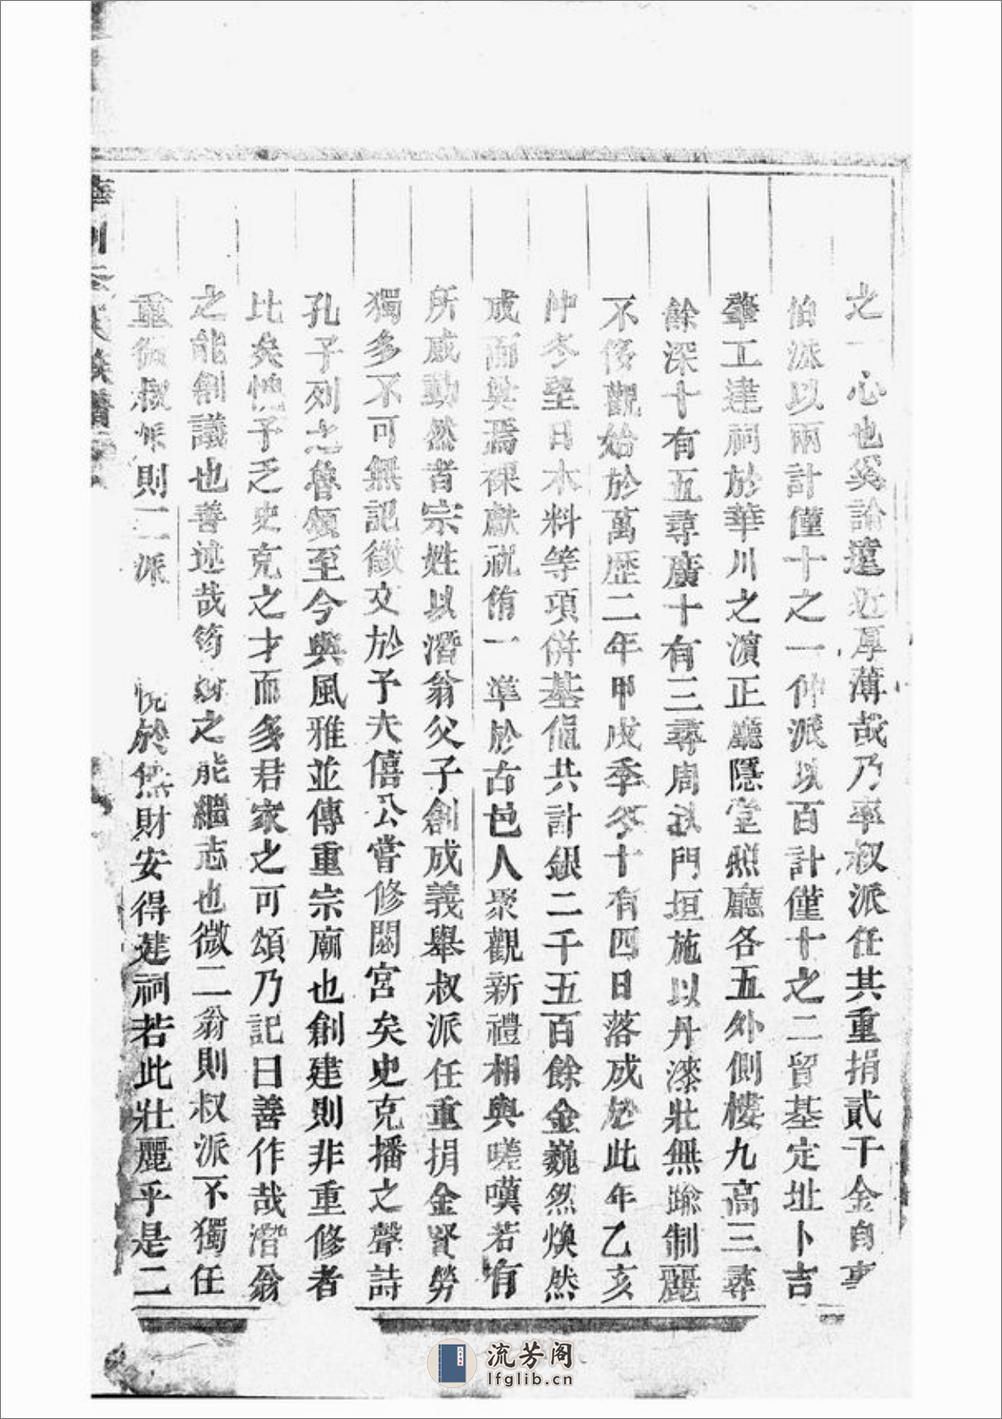 之一心也奚論遠近厚薄哉乃率叔派任其重捐貳千金自事
伯派以兩計僅十之一仲派以百計僅十之二貿基定址卜吉
肇工建祠於華川之濵正廳隱堂照廳各五外側樓九高三尋
餘深十有五尋廣十有三尋周以門垣施以丹漆壯無踰制麗
不侈觀始於萬歷二年甲戌季冬十有四日落成於此年乙亥
仲冬至日木料等項併基值共計銀二千五百餘金巍然煥然
成而奠焉祼獻祝侑一準於古邑人聚觀新禮相與嗟嘆若有
所感動然者宗姓以潛翁父子創成義舉叔派任重捐金賢勞
獨多不可無記徵文於予夫僖公嘗修閟宮矣史克播之聲詩
孔子列之魯頌至今與風雅並傳重宗廟也創建則非重修者
比矣愧予乏史克之才而多君家之可頌乃記曰善作哉潛翁
之能創議也善述哉筠 之能繼志也微二翁則叔派不獨任
重微叔派則二派 於無財安得建祠若此壯麗乎是二
族譜
流芳阁
lfglib.cn